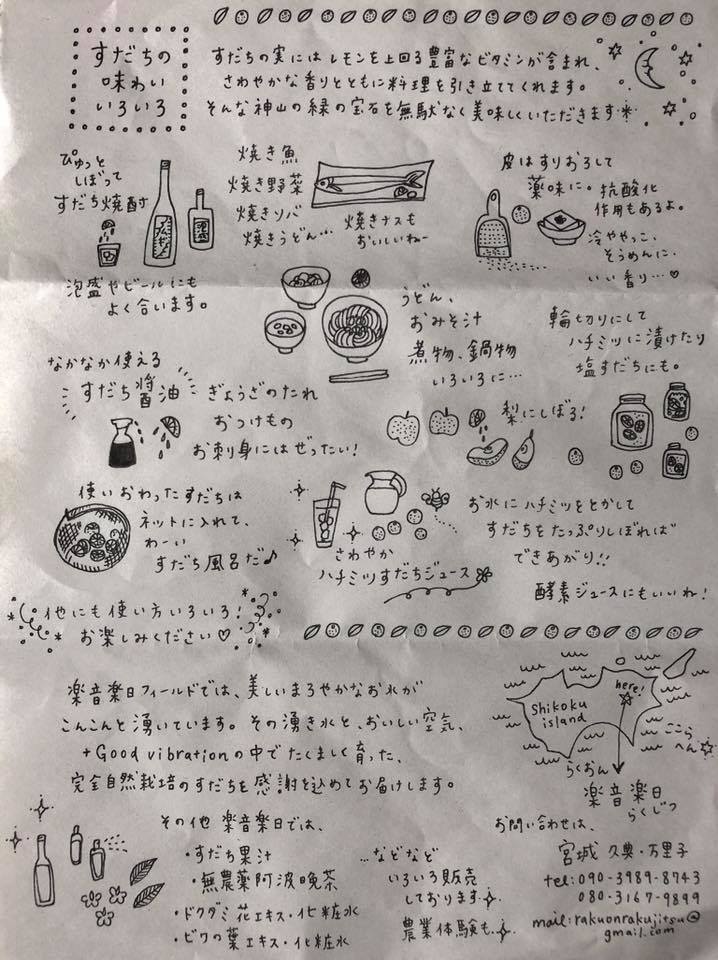 すだちの
味わい
いろいろ
すだちの実にはレモンを上回る豊富なビタミンが含まれ、
さわやかな香りとともに料理を引き立ててくれます。
そんな神山の緑の宝石を無駄なく美味しくいただきます
ぴゅっと
しぼって
すだち焼酎
泡盛
泡盛やビールにも
よく合います。
焼き魚
焼き野菜
焼きソバ
焼きうどん…
焼きナスも
おいしいねー
皮はすりおろして
薬味に。抗酸化
作用もあるよ。
冷ややっこ、
そうめんに、
いい香り…♡
うどん、
おみそ汁
煮物、鍋物
いろいろに…
輪切りにして
ハチミツに漬けたり
塩すだちにも。
なかなか使える
すだち醤油
ぎょうざのたれ
おつけもの
お刺身にはぜったい!
梨にしぼる!
使いおわったすだちは
ネットに入れて、
わーい
すだち風呂だ♪
さわやか
ハチミツすだちジュース
お水にハチミツをとかして
すだちをたっぷりしぼれば
できあがり!!
酵素ジュースにもいいね!
他にも使い方いろいろ!
お楽しみください♡
楽音楽日フィールドでは、美しいまろやかなお水が
こんこんと湧いています。その湧き水と、おいしい空気、
+Good vibrationの中でたくましく育った、
完全自然栽培のすだちを感謝を込めてお届けします。
Shikoku
island
here!
ここら
へん
らくおん
楽音楽日
らくじつ
その他 楽音楽日では、
・すだち果汁
・無農薬阿波晩茶
・ドクダミ花エキス・化粧水
・ビワの葉エキス・化粧水
…などなど
いろいろ販売
しております
農業体験も
お問い合わせは、
宮城 久典・万里子
tel:090-3989-8743
080-3167-9899
mail:rakuonrakujitsu@
gmail.com